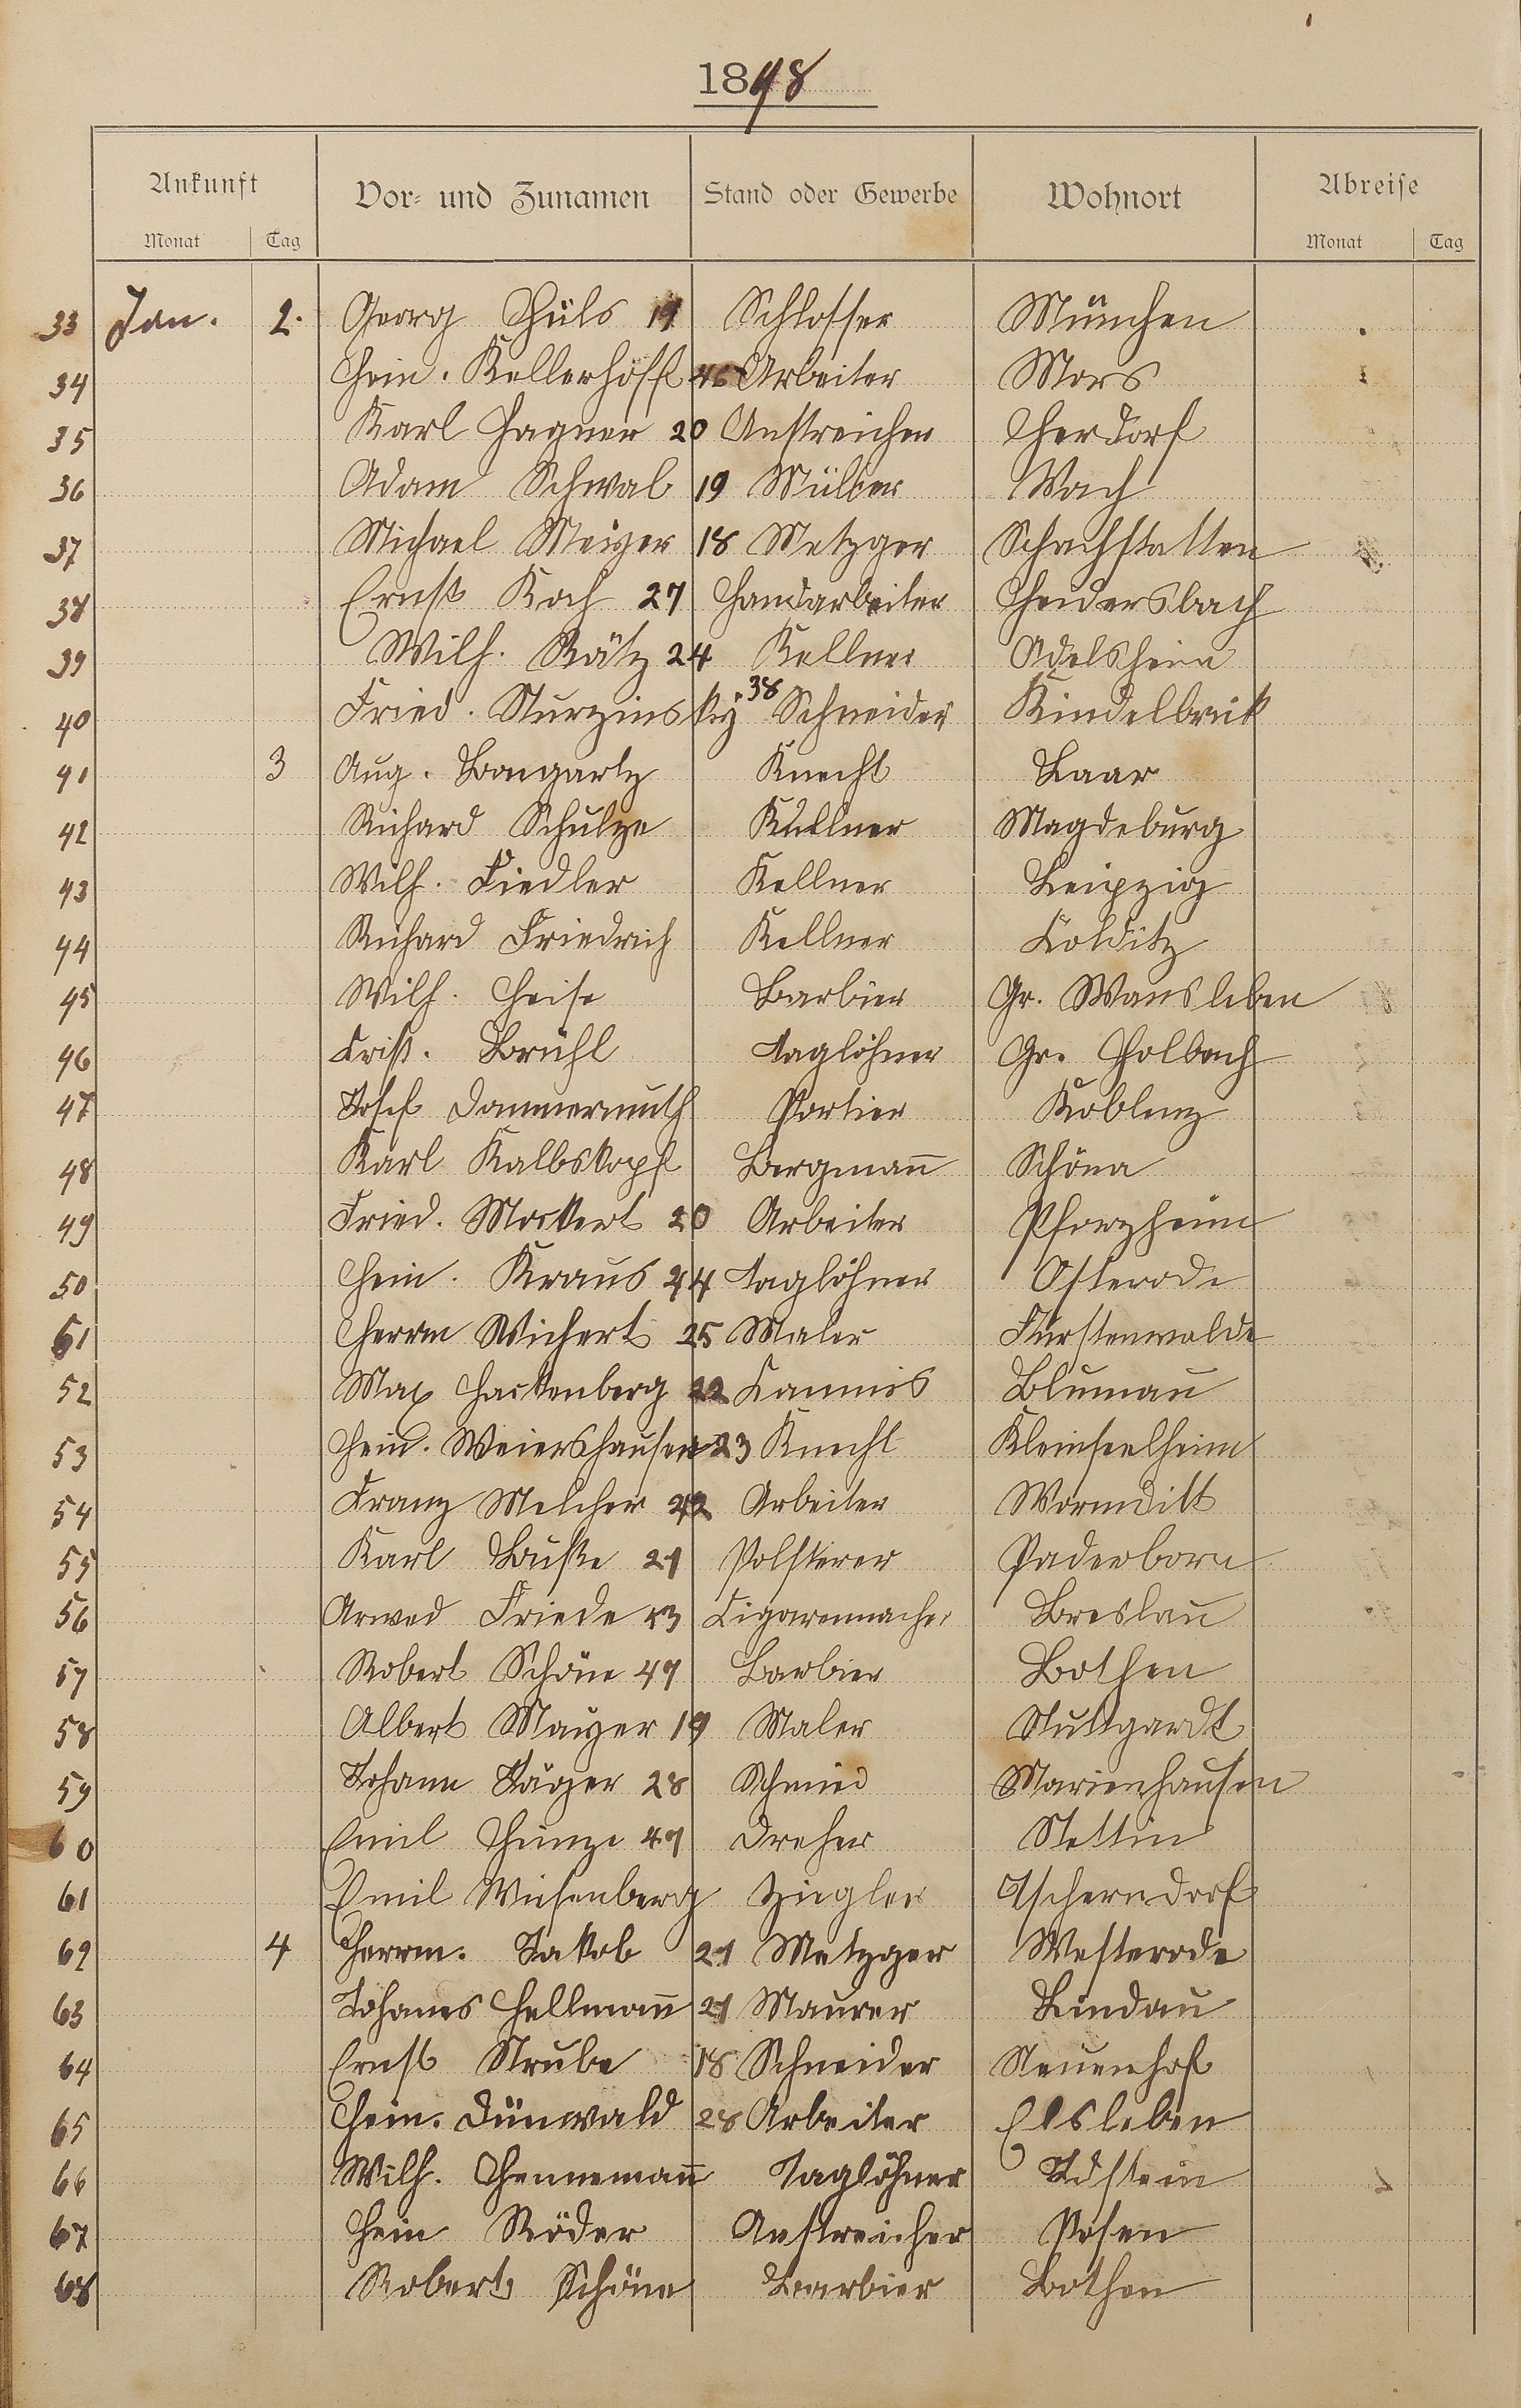 1898
Ankunft Vor- und Zunamen Stand oder Gewerbe Wohnort Abreise
Monat Tag Monat Tag
33 Jan. 2. Georg Hüls 19 Schlosser München
34 Hein. Kellerhoff 46 Arbeiter Mörs
35 Karl Hagner 20 Anstreicher Herdorf
36 Adam Schwab 19 Müller Vach
37 Michael Meiyer 18 Metzger Schachstatten
38 Ernst Koch 27 Handarbeiter Heidersbach
39 Wilh. Rätz 24 Kellner Adelsheim
40 Fried. Sturzinsky 38 Schneider Kindelbrük
41 3 Aug. Bongartz Knecht Laar
42 Richard Schulze Kellner Magdeburg
43 Wilh. Fiedler Kellner Leipzig
44 Richard Friedrich Kellner Kolditz
45 Wilh. Heise Barbier Gr. Wansleben
46 Krist. Brühl Taglöhner Gr. Holbach
47 Josef Dammermuth Portier Koblenz
48 Karl Kalbskopf Bergmann Schöna
49 Fried. Mostert 20 Arbeiter Pforzheim
50 Hein. Kraus 24 Taglöhner Osterode
51 Herrm Wichert 25 Maler Fürstenwalde
52 Max Hackenberg 22 Kommis Blumau
53 Heind. Weiershausen 23 Knecht Kleinseelheim
54 Franz Melcher 42 Arbeiter Wormditt
55 Karl Buste 21 Polsterer Paderborn
56 Arwed Friede 53 Cigarrenmacher Breslau
57 Robert Schöne 47 Barbier Bothen
58 Albert Mayer 19 Maler Stuttgardt
59 Johann Jäger 28 Schmied Marienhausen
60 Emil Hinze 47 Dreher Stettin
61 Emil Wiesenberg Ziegler Tscherndorf
62 4 Herrm. Jakob 21 Metzger Westerode
63 Johanes Hellmann 21 Maurer Lindau
64 Ernst Strube 18 Schneider Neuenhof
65 Hein. Dünwald 28 Arbeiter Elsleben
66 Wilh. Hennemann Taglöhner Idstein
67 Hein Röder Anstreicher Posen
68 Robert Schöne Barbier Bothen